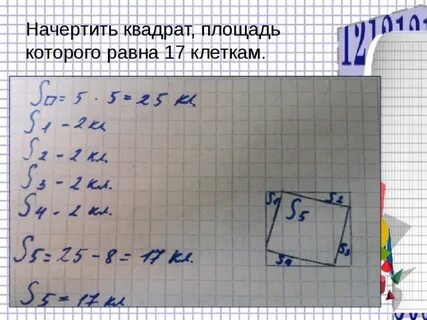 Начертить квадрат, площадь
которого равна 17 клеткам.
S□ = 5 · 5 = 25 кл.
S1 – 2 кл.
S2 – 2 кл.
S3 – 2 кл.
S4 – 2 кл.
S5 = 25 – 8 = 17 кл.
S5 = 17 кл
S1
S2
S5
S3
S4